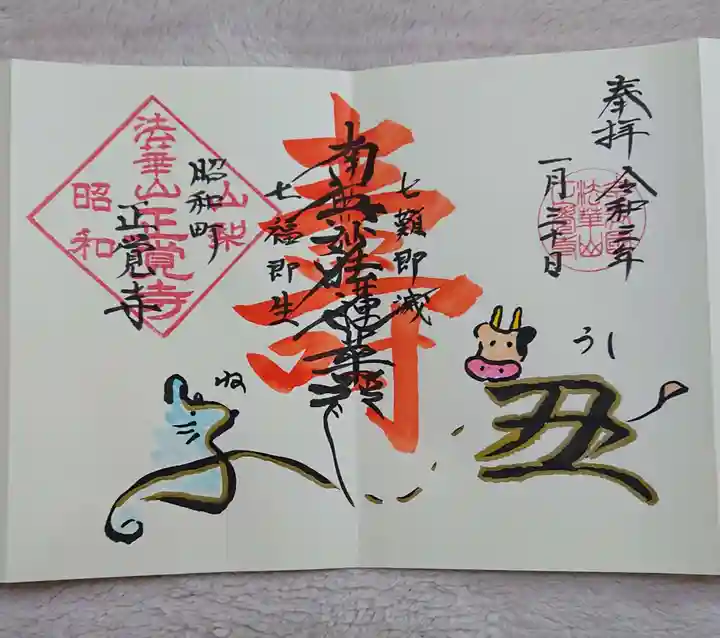 奉拝
令和三年
一月三十日
法華山
うし
丑
七難即滅
寿
南無妙法蓮華経
七福即生
ね
子
昭和町
正覚寺
法華山
山梨
正覚寺
昭和